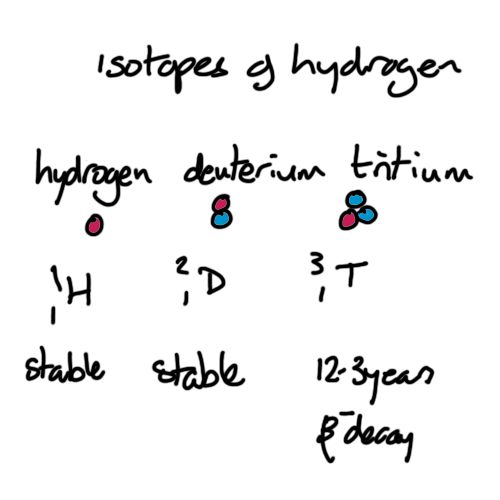 isotopes of hydrogen
hydrogen deuterium tritium
¹₁H ²₁D ³₁T
stable stable 12.3years
β⁻decay